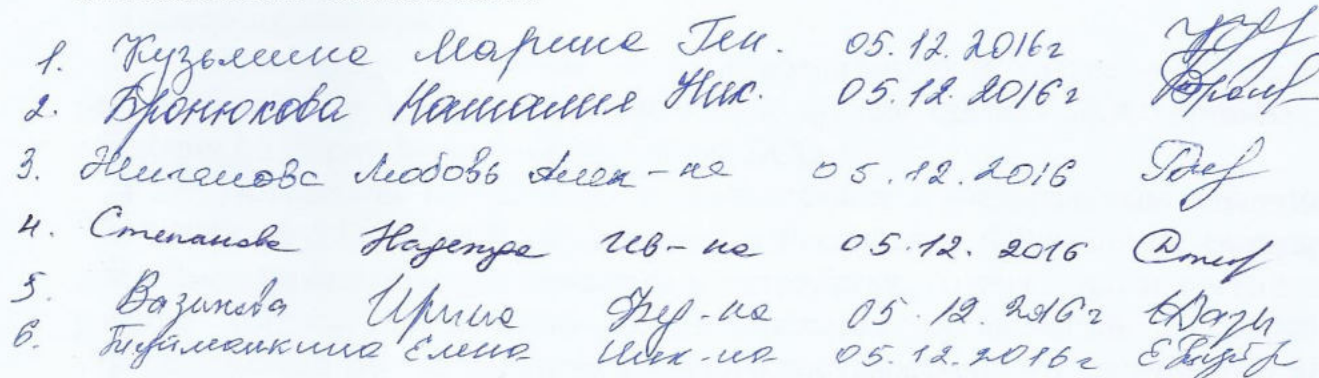 1. Кузьмина Марина Ген. 05.12.2016г
2. Бронюкова Наталия Ник. 05.12.2016г
3. Любовь Алек-на 05.12.2016
4. Степанова Надежда Ив-на 05.12.2016
5. Вазикова Ирина 05.12.2016г
6. Елена Ник-на 05.12.2016г